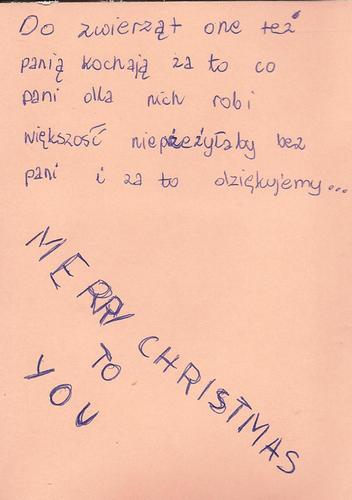 Do zwierząt one też
panią kochają za to co
pani dla nich robi
większość nieprzeżyłaby bez
pani i za to dziękujemy...
MERRY CHRISTMAS
TO
YOU